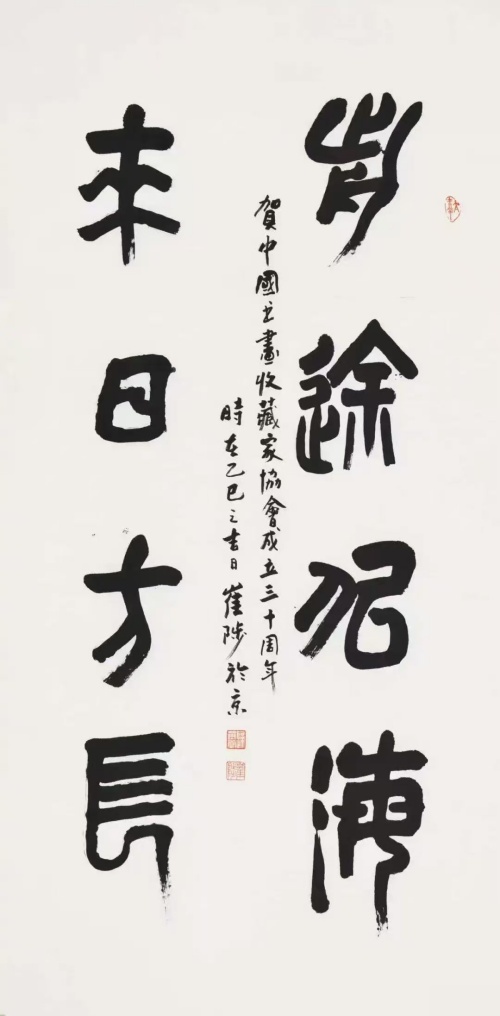 前途似海
賀中國书畫收藏家協會成立三十周年
時在乙巳之吉日崔陟於京
来日方長